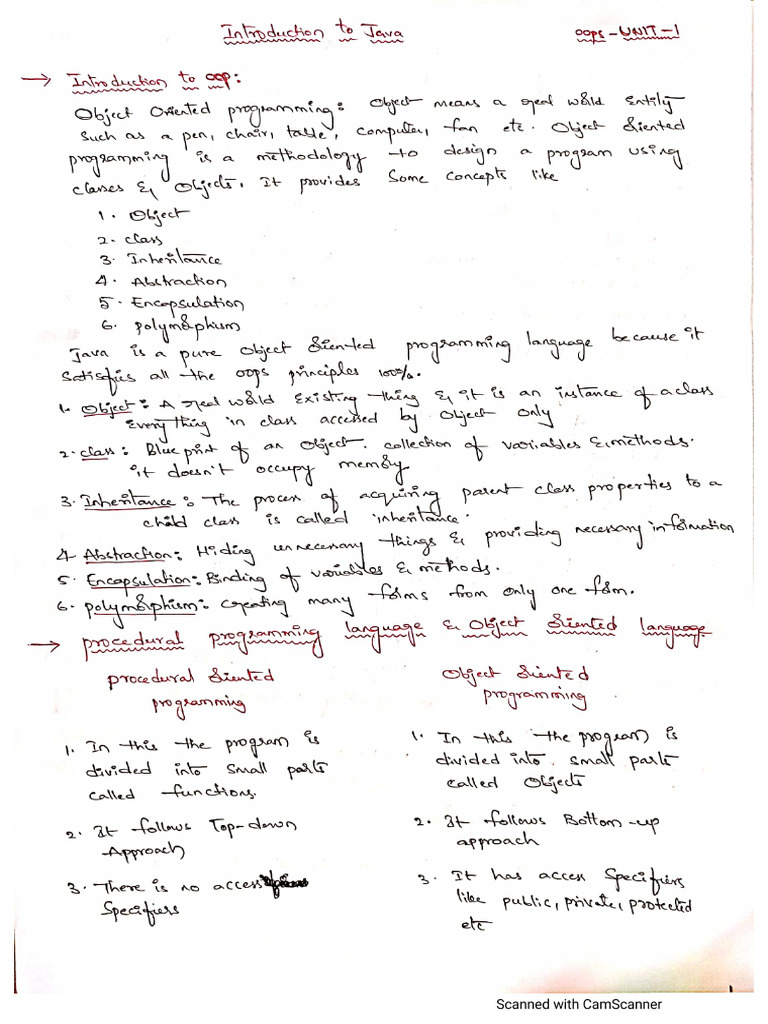 Introduction to Java
OOPS-UNIT-1
→ Introduction to OOP:
Object Oriented programming: Object means a real world Entity
such as a pen, chair, table, computer, fan etc. Object Oriented
programming is a methodology to design a program using
classes & Objects. It provides some concepts like
1. Object
2. class
3. Inheritance
4. Abstraction
5. Encapsulation
6. polymorphism
Java is a pure Object Oriented programming language because it
satisfies all the OOPS principles 100%.
1. Object: A real world Existing thing & it is an instance of a class
Everything in class accessed by Object only
2. class: Blue print of an Object. collection of variables & methods.
it doesn't occupy memory
3. Inheritance: The process of acquiring parent class properties to a
child class is called inheritance.
4 Abstraction: Hiding unnecessary things & providing necessary information
5. Encapsulation: Binding of variables & methods.
6. polymorphism: Creating many forms from only one form.
→ procedural programming language & Object Oriented language
procedural Oriented
programming
1. In this the program is
divided into small parts
called functions.
2. It follows Top-down
Approach
3. There is no access
Specifiers
Object Oriented
programming
1. In this the program is
divided into small parts
called Objects
2. It follows Bottom-up
approach
3. It has access Specifiers
like public, private, protected
etc
Scanned with CamScanner